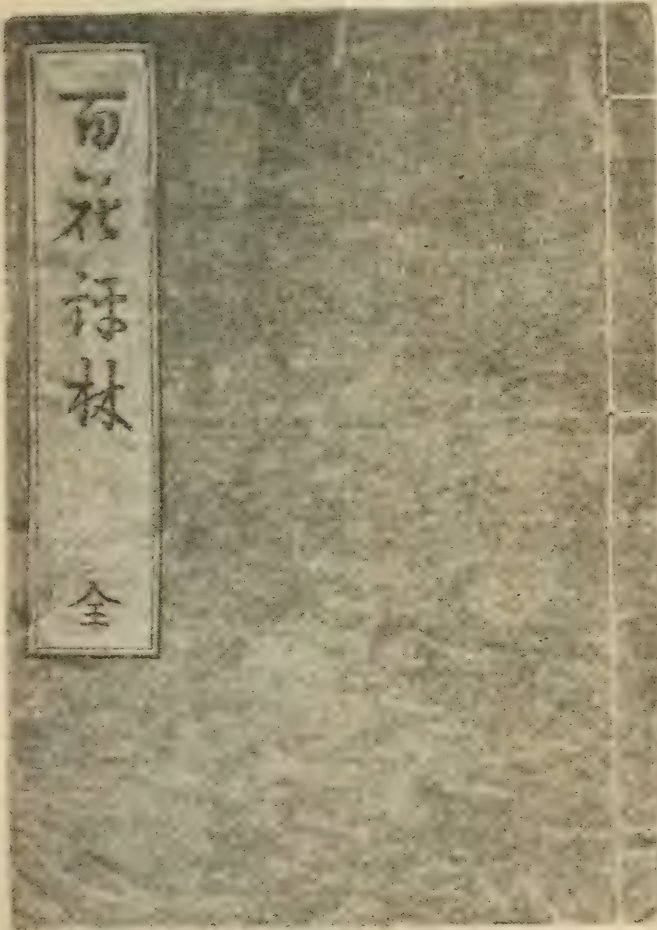 百花評林 全